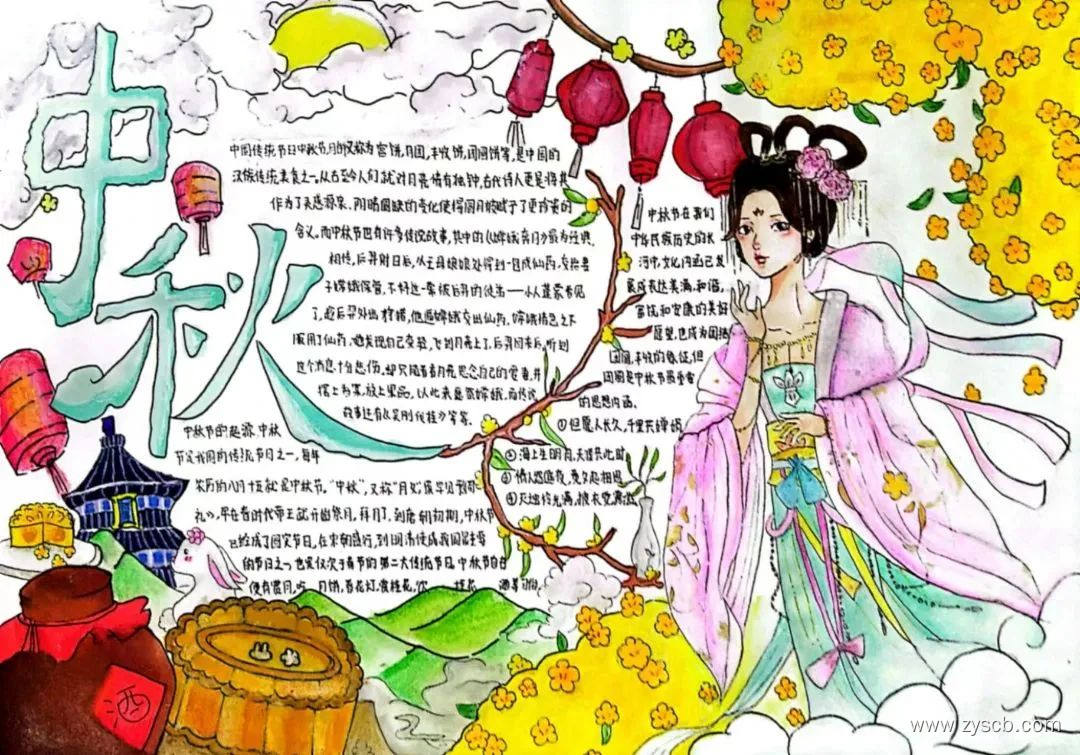 中秋
中国传统节日中秋节,月饼又称为宫饼,月团,丰收饼,团圆饼等,是中国的
汉族传统美食之一,从古至今人们就对月亮情有独钟,古代诗人更是将其
作为了灵感源泉.阴晴圆缺的变化使得圆月被赋予了更珍贵的
含义,而中秋节也有许多传说故事,其中的《嫦娥奔月》最为经典.
相传,后羿射日后,从王母娘娘处得到一包成仙药,交给妻
子嫦娥保管,不料这一幕被后羿的徒
了,趁后羿外出狩猎,他逼嫦娥交出仙药,嫦娥情急之下
服用了仙药,她发现自己变轻,飞到月亮上了,后羿回来后,听到
这个消息十分悲伤,却只能看着月亮思念自己的爱妻,并
摆上书案,放上果品,以此来悬念嫦娥,而传说
故事还有《吴刚伐桂》等等.
中秋节在我们
中华民族历史的长
河中,文化内涵已发
展成表达美满,和谐,
富饶和安康的美好
愿望,也成为团结
团圆,丰收的象征,但
团圆是中秋节最重要
的思想内涵.
①但愿人长久,千里共婵娟
②海上生明月,天涯共此时
③情人怨遥夜,竟夕起相思
④灭烛怜光满,披衣觉露滋
中秋节的起源 中秋
节是我国的传统节日之一,每年
农历的八月十五就是中秋节."中秋",又称"月夕",最早见
礼》,早在春时代帝王就开始祭月,拜月了,到唐朝初期,中秋节
已经成了固定节日,在宋朝盛行,到明清便成我国主要
的节日之一也是仅次于春节的第二大传统节日,中秋节自古
便有赏月,吃 月饼,看花灯,赏桂花,饮 桂花 酒等习俗.
酒
www.zyscb.com